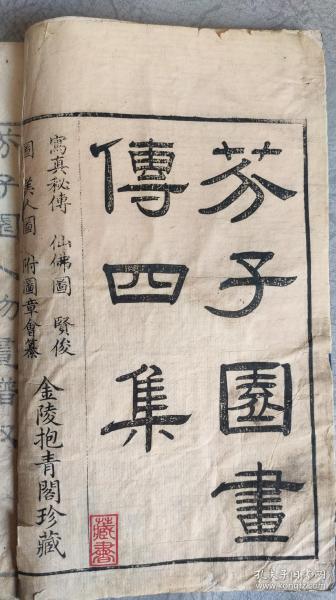 芥子園畫
傳四集
寫真秘傳 仙佛圖 賢俊
圖 美人圖 附圖章會纂
金陵抱青閣珍藏
藏書
芥子園人物畫譜
孔夫子旧书网